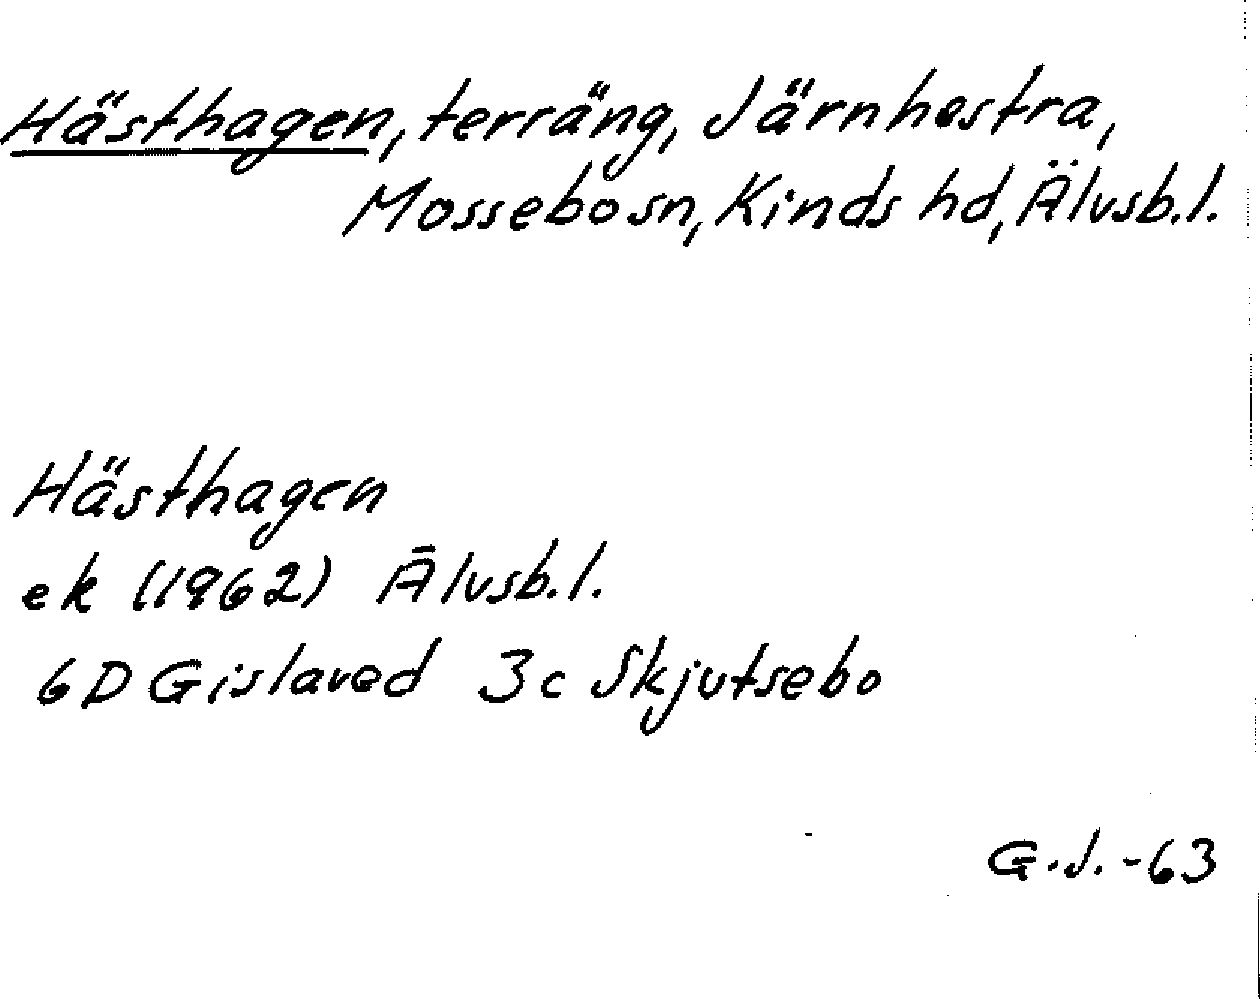 Hästhagen, terräng, Järnhestra,
Mossebo sn, Kinds hd, Älvsb.l.
Hästhagen
ek (1962) Älvsb.l.
6D Gislaved 3c Skjutsebo
G.J.-63